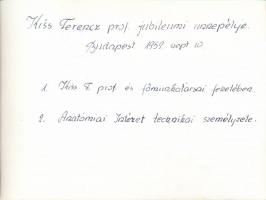 Kiss Ferencz prof. jubileumi ünnepélye.
Budapest 1959. szept. 10.
1. Kiss F. prof. és főmunkatársai fezelében.
2. Anatómiai Intézet technikai személyzete.